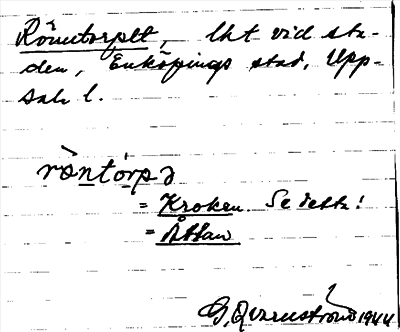 Römtorpet, lht vid sta-
den, Enköpings stad, Upp-
sala l.
röntórpə
= Kroken. Se detta!
= Åttan
G. Qvarnström 1944